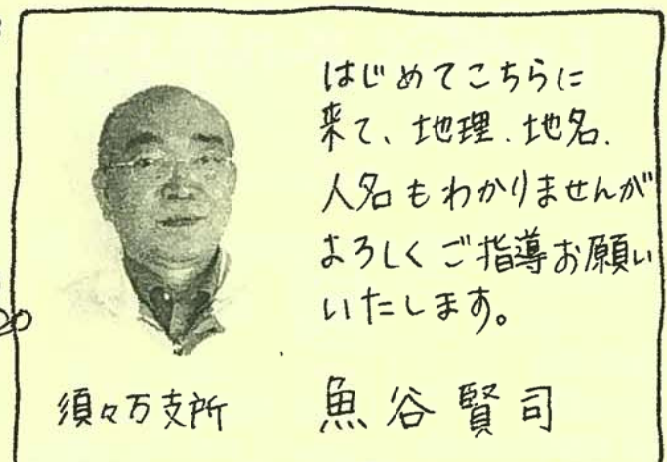 はじめてこちらに
来て、地理.地名.
人名もわかりませんが
よろしくご指導お願い
いたします。
須々万支所
魚谷賢司